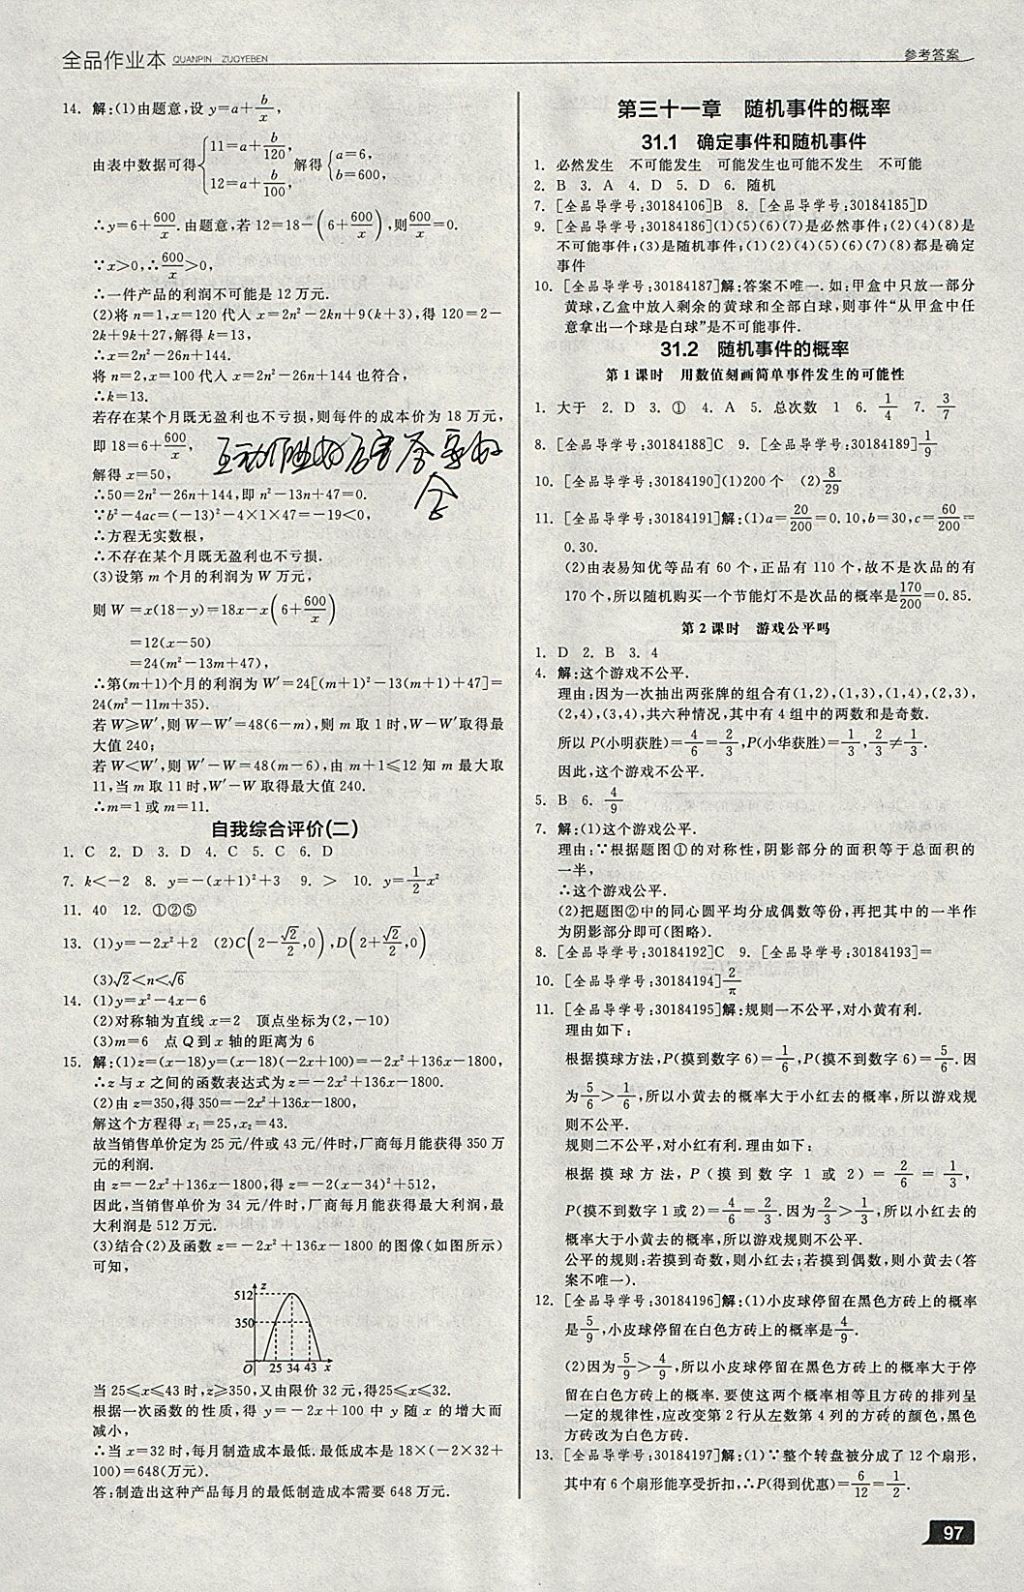 全品作业本 QUANPIN ZUOYEBEN
参考答案
14. 解:(1)由题意,设 y=a+b/x,
由表中数据可得{11=a+b/120, 12=a+b/100, 解得{a=6, b=600,
∴y=6+600/x.由题意,若 12=18-(6+600/x),则600/x=0.
∵x>0,∴600/x>0,
∴一件产品的利润不可能是 12 万元.
(2)将 n=1,x=120 代入 x=2n²-2kn+9(k+3),得 120=2-
2k+9k+27,解得 k=13,
∴x=2n²-26n+144.
将 n=2,x=100 代入 x=2n²-26n+144 也符合,
∴k=13.
若存在某个月既无盈利也不亏损,则每件的成本价为 18 万元,
即 18=6+600/x,
解得 x=50,
∴50=2n²-26n+144,即 n²-13n+47=0.
∵b²-4ac=(-13)²-4×1×47=-19<0,
∴方程无实数根,
∴不存在某个月既无盈利也不亏损.
(3)设第 m 个月的利润为 W 万元,
则 W=x(18-y)=18x-x(6+600/x)
=12(x-50)
=24(m²-13m+47),
∴第(m+1)个月的利润为 W′=24[(m+1)²-13(m+1)+47]=
24(m²-11m+35).
若 W≥W′,则 W-W′=48(6-m),则 m 取 1 时,W-W′取得最
大值 240;
若 W<W′,则 W′-W=48(m-6),由 m+1≤12 知 m 最大取
11,当 m 取 11 时,W′-W 取得最大值 240.
∴m=1 或 m=11.
自我综合评价(二)
1. C 2. D 3. D 4. C 5. C 6. D
7. k<-2 8. y=-(x+1)²+3 9. > 10. y=1/2x²
11. 40 12. ①②⑤
13. (1)y=-2x²+2 (2)C(2-√2/2,0),D(2+√2/2,0)
(3)√2<n<√6
14. (1)y=x²-4x-6
(2)对称轴为直线 x=2 顶点坐标为(2,-10)
(3)m=6 点 Q 到 x 轴的距离为 6
15. 解:(1)z=(x-18)y=(x-18)(-2x+100)=-2x²+136x-1800,
∴z 与 x 之间的函数表达式为 z=-2x²+136x-1800.
(2)由 z=350,得 350=-2x²+136x-1800,
解这个方程得 x₁=25,x₂=43.
故当销售单价定为 25 元/件或 43 元/件时,厂商每月能获得 350 万
元的利润.
由 z=-2x²+136x-1800,得 z=-2(x-34)²+512,
因此,当销售单价为 34 元/件时,厂商每月能获得最大利润,最
大利润是 512 万元.
(3)结合(2)及函数 z=-2x²+136x-1800 的图像(如图所示)
可知,
z
512
350
O 25 34 43 x
当 25≤x≤43 时,z≥350,又由限价 32 元,得25≤x≤32.
根据一次函数的性质,得 y=-2x+100 中 y 随 x 的增大而
减小,
∴当 x=32 时,每月制造成本最低.最低成本是 18×(-2×32+
100)=648(万元).
答:制造出这种产品每月的最低制造成本需要 648 万元.
第三十一章 随机事件的概率
31.1 确定事件和随机事件
1. 必然发生 不可能发生 可能发生也可能不发生 不可能
2. B 3. A 4. D 5. D 6. 随机
7. [全品导学号:30184106]B 8. [全品导学号:30184185]D
9. [全品导学号:30184186](1)(5)(6)(7)是必然事件;(2)(4)(8)是
不可能事件;(3)是随机事件;(1)(2)(4)(5)(6)(7)(8)都是确定
事件
10. [全品导学号:30184187]解:答案不唯一.如:甲盒中只放一部分
黄球,乙盒中放入剩余的黄球和全部白球,则事件“从甲盒中任
意拿出一个球是白球”是不可能事件.
31.2 随机事件的概率
第 1 课时 用数值刻画简单事件发生的可能性
1. 大于 2. D 3. ① 4. A 5. 总次数 1 6. 1/4 7. 3/7
8. [全品导学号:30184188]C 9. [全品导学号:30184189]1/9
10. [全品导学号:30184190](1)200 个 (2)8/29
11. [全品导学号:30184191]解:(1)a=20/200=0.10,b=30,c=60/200=
0.30.
(2)由表易知优等品有 60 个,正品有 110 个,故不是次品的有
170 个,所以随机购买一个节能灯不是次品的概率是170/200=0.85.
第 2 课时 游戏公平吗
1. D 2. B 3. 4
4. 解:这个游戏不公平.
理由:因为一次抽出两张牌的组合有(1,2),(1,3),(1,4),(2,3),
(2,4),(3,4),共六种情况,其中有 4 组中的两数和是奇数.
所以 P(小明获胜)=4/6=2/3,P(小华获胜)=1/3,2/3≠1/3.
因此,这个游戏不公平.
5. B 6. 4/9
7. 解:(1)这个游戏公平.
理由:∵根据题图①的对称性,阴影部分的面积等于总面积的
一半,
∴这个游戏公平.
(2)把题图②中的同心圆平均分成偶数等份,再把其中的一半作
为阴影部分即可(图略).
8. [全品导学号:30184192]C 9. [全品导学号:30184193]=
10. [全品导学号:30184194]2/π
11. [全品导学号:30184195]解:规则一不公平,对小黄有利.
理由如下:
根据摸球方法,P(摸到数字 6)=1/6,P(摸不到数字 6)=5/6.因
为5/6>1/6,所以小黄去的概率大于小红去的概率,所以游戏规
则不公平.
规则二不公平,对小红有利.理由如下:
根据摸球方法,P(摸到数字 1 或 2)=2/6=1/3,
P(摸不到数字 1 或 2)=4/6=2/3.因为2/3>1/3,所以小红去的
概率大于小黄去的概率,所以游戏规则不公平.
公平的规则:若摸到奇数,则小红去;若摸到偶数,则小黄去(答
案不唯一).
12. [全品导学号:30184196]解:(1)小皮球停留在黑色方砖上的概率
是5/9,小皮球停留在白色方砖上的概率是4/9.
(2)因为5/9>4/9,所以小皮球停留在黑色方砖上的概率大于停
留在白色方砖上的概率.要使这两个概率相等且方砖的排列呈
一定的规律性,应改变第 2 行从左数第 4 列的方砖的颜色,黑色
方砖改为白色方砖.
13. [全品导学号:30184197]解:(1)∵整个转盘被分成了 12 个扇形,
其中有 6 个扇形能享受折扣,∴P(得到优惠)=6/12=1/2.
97